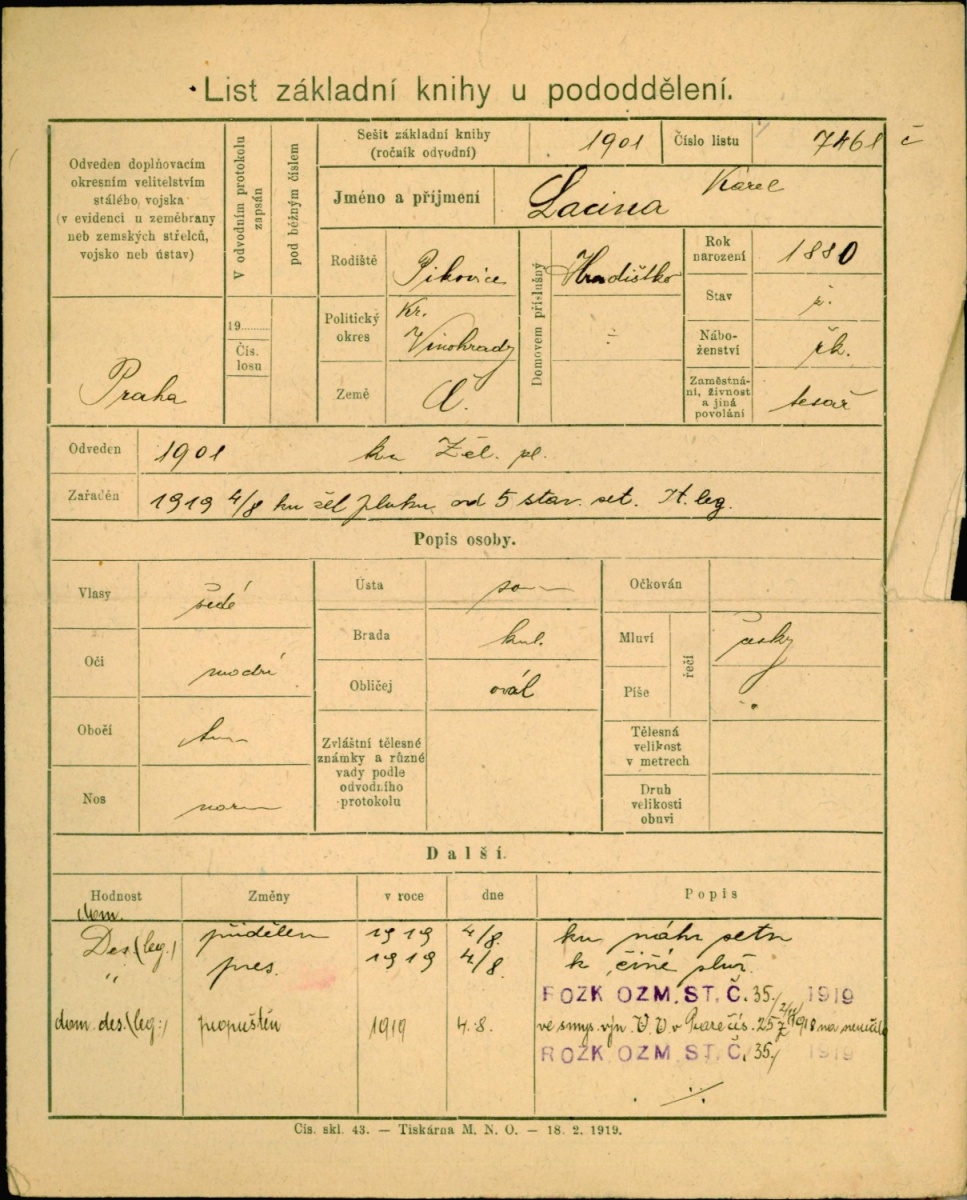 List základní knihy u pododdělení.
Odveden doplňovacím
okresním velitelstvím
stálého vojska
(v evidenci u zeměbrany
neb zemských střelců,
vojsko neb ústav)
Praha
V odvodním protokolu
zapsán
pod běžným číslem
19........
Čís.
losu
Sešit základní knihy
(ročník odvodní)
1901
Číslo listu
7461 č
Jméno a příjmení
Lacina Karel
Rodiště
Pikovice
Politický
okres
Kr.
Vinohrady
Země
Č.
Domovem příslušný
Hradištko
Rok
narození
1880
Stav
ž.
Nábo-
ženství
řk.
Zaměstná-
ní, živnost
a jiná
povolání
tesař
Odveden
1901 ku Žel. pl.
Zařaděn
1919 4/8 ku žel pluku od 5 stav. set. It. leg.
Popis osoby.
Vlasy
šedé
Oči
modré
Obočí
Nos
norm
Ústa
Brada
kul.
Obličej
ovál
Zvláštní tělesné
známky a různé
vady podle
odvodního
protokolu
Očkován
Mluví
Píše
řečí
česky
Tělesná
velikost
v metrech
Druh
velikosti
obuvi
Další.
Hodnost Změny v roce dne Popis
dom.
Des (leg.) přidělen 1919 4/8. ku náhr setn
" pres. 1919 4/8. k čině služ.
ROZK OZM. ST. Č. 35./ 1919
dom. des. (leg:) propuštěn 1919 4.8. ve smys. výn. V. V v Praze čís. 25
ROZK OZM. ST. Č. 35./ 1919
Čís. skl. 43. — Tiskárna M. N. O. — 18. 2. 1919.